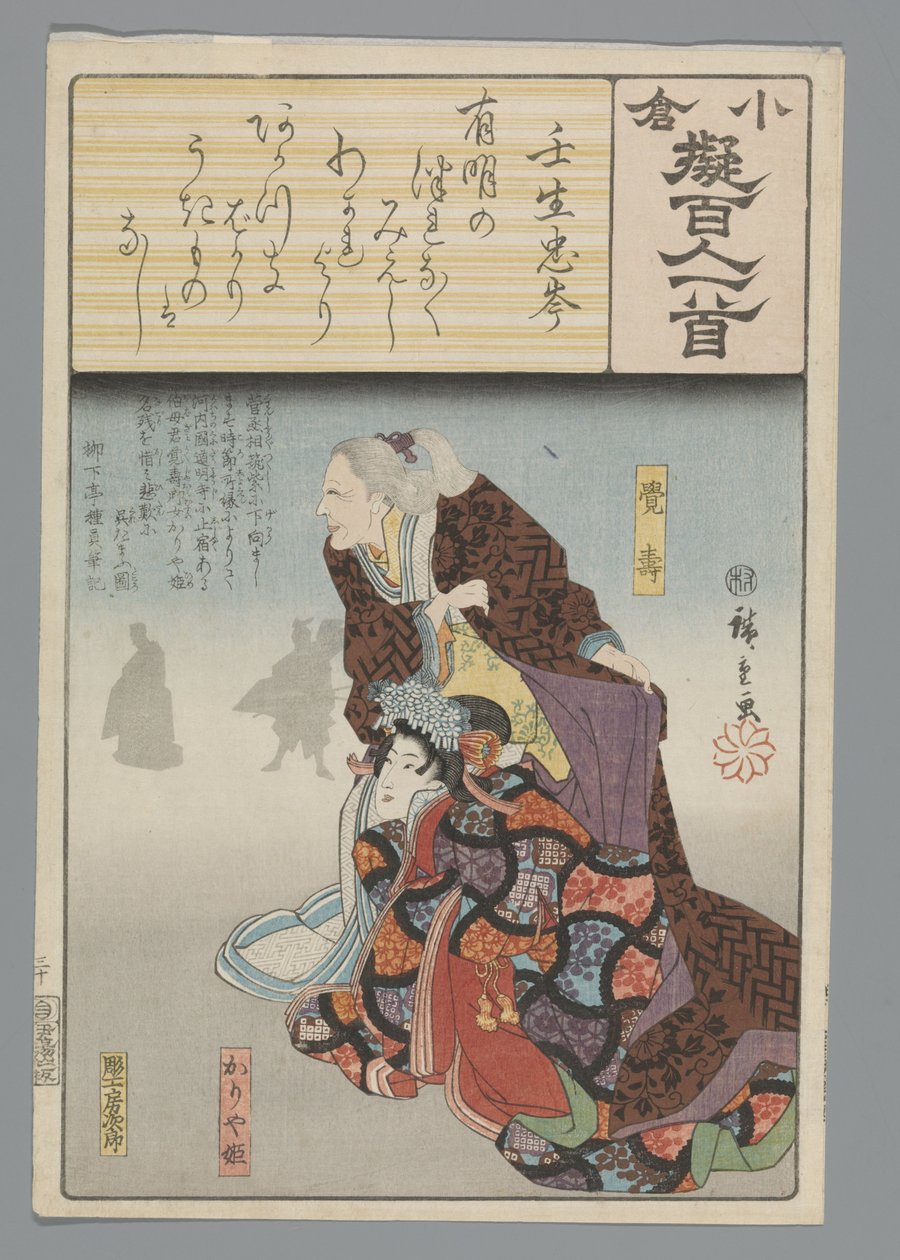 小倉
擬百人一首
壬生忠岑
有明の
つれなく
みえし
わかれ
より
あかつき
ばかり
うきもの
は
なし
菅丞相筑紫に下向まし
ます時節所縁によりて
河内國道明寺に止宿ある
伯母君覚寿かりや姫
名残を惜み悲歎に
呉たまふ圖
柳下亭種員筆記
覺壽
村
廣重画
かりや姫
彫工房次郎
三十